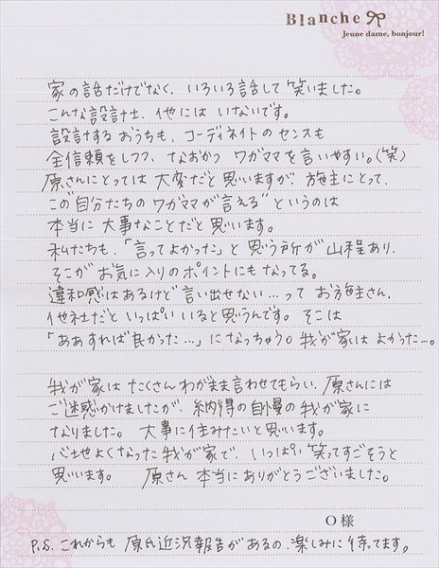 Blanche
Jeune dame, bonjour!
家の話だけでなく、いろいろ話して笑いました。
こんな設計士、他にはいないです。
設計するおうちも、コーディネイトのセンスも
全信頼をしつつ、なおかつ ワガママを言いやすい。(笑)
原さんにとっては 大変だと思いますが、施主にとって、
この"自分たちの ワガママが言える"というのは
本当に 大事なことだと思います。
私たちも、「言ってよかった」と思う所が山程あり、
そこが お気に入りのポイントにもなってる。
違和感はあるけど言い出せない…って お施主さん、
他社だといっぱいいると思うんです。そこは
「ああすれば良かった…」になっちゃう。我が家は よかった…。
我が家は たくさんわがまま言わせてもらい、原さんには
ご迷惑かけましたが、納得の自慢の我が家に
なりました。 大事に住みたいと思います。
心地よくなった我が家で、いっぱい笑ってすごそうと
思います。 原さん 本当にありがとうございました。
O 様
P.S. これからも 原氏近況報告があるの、楽しみに待ってます。